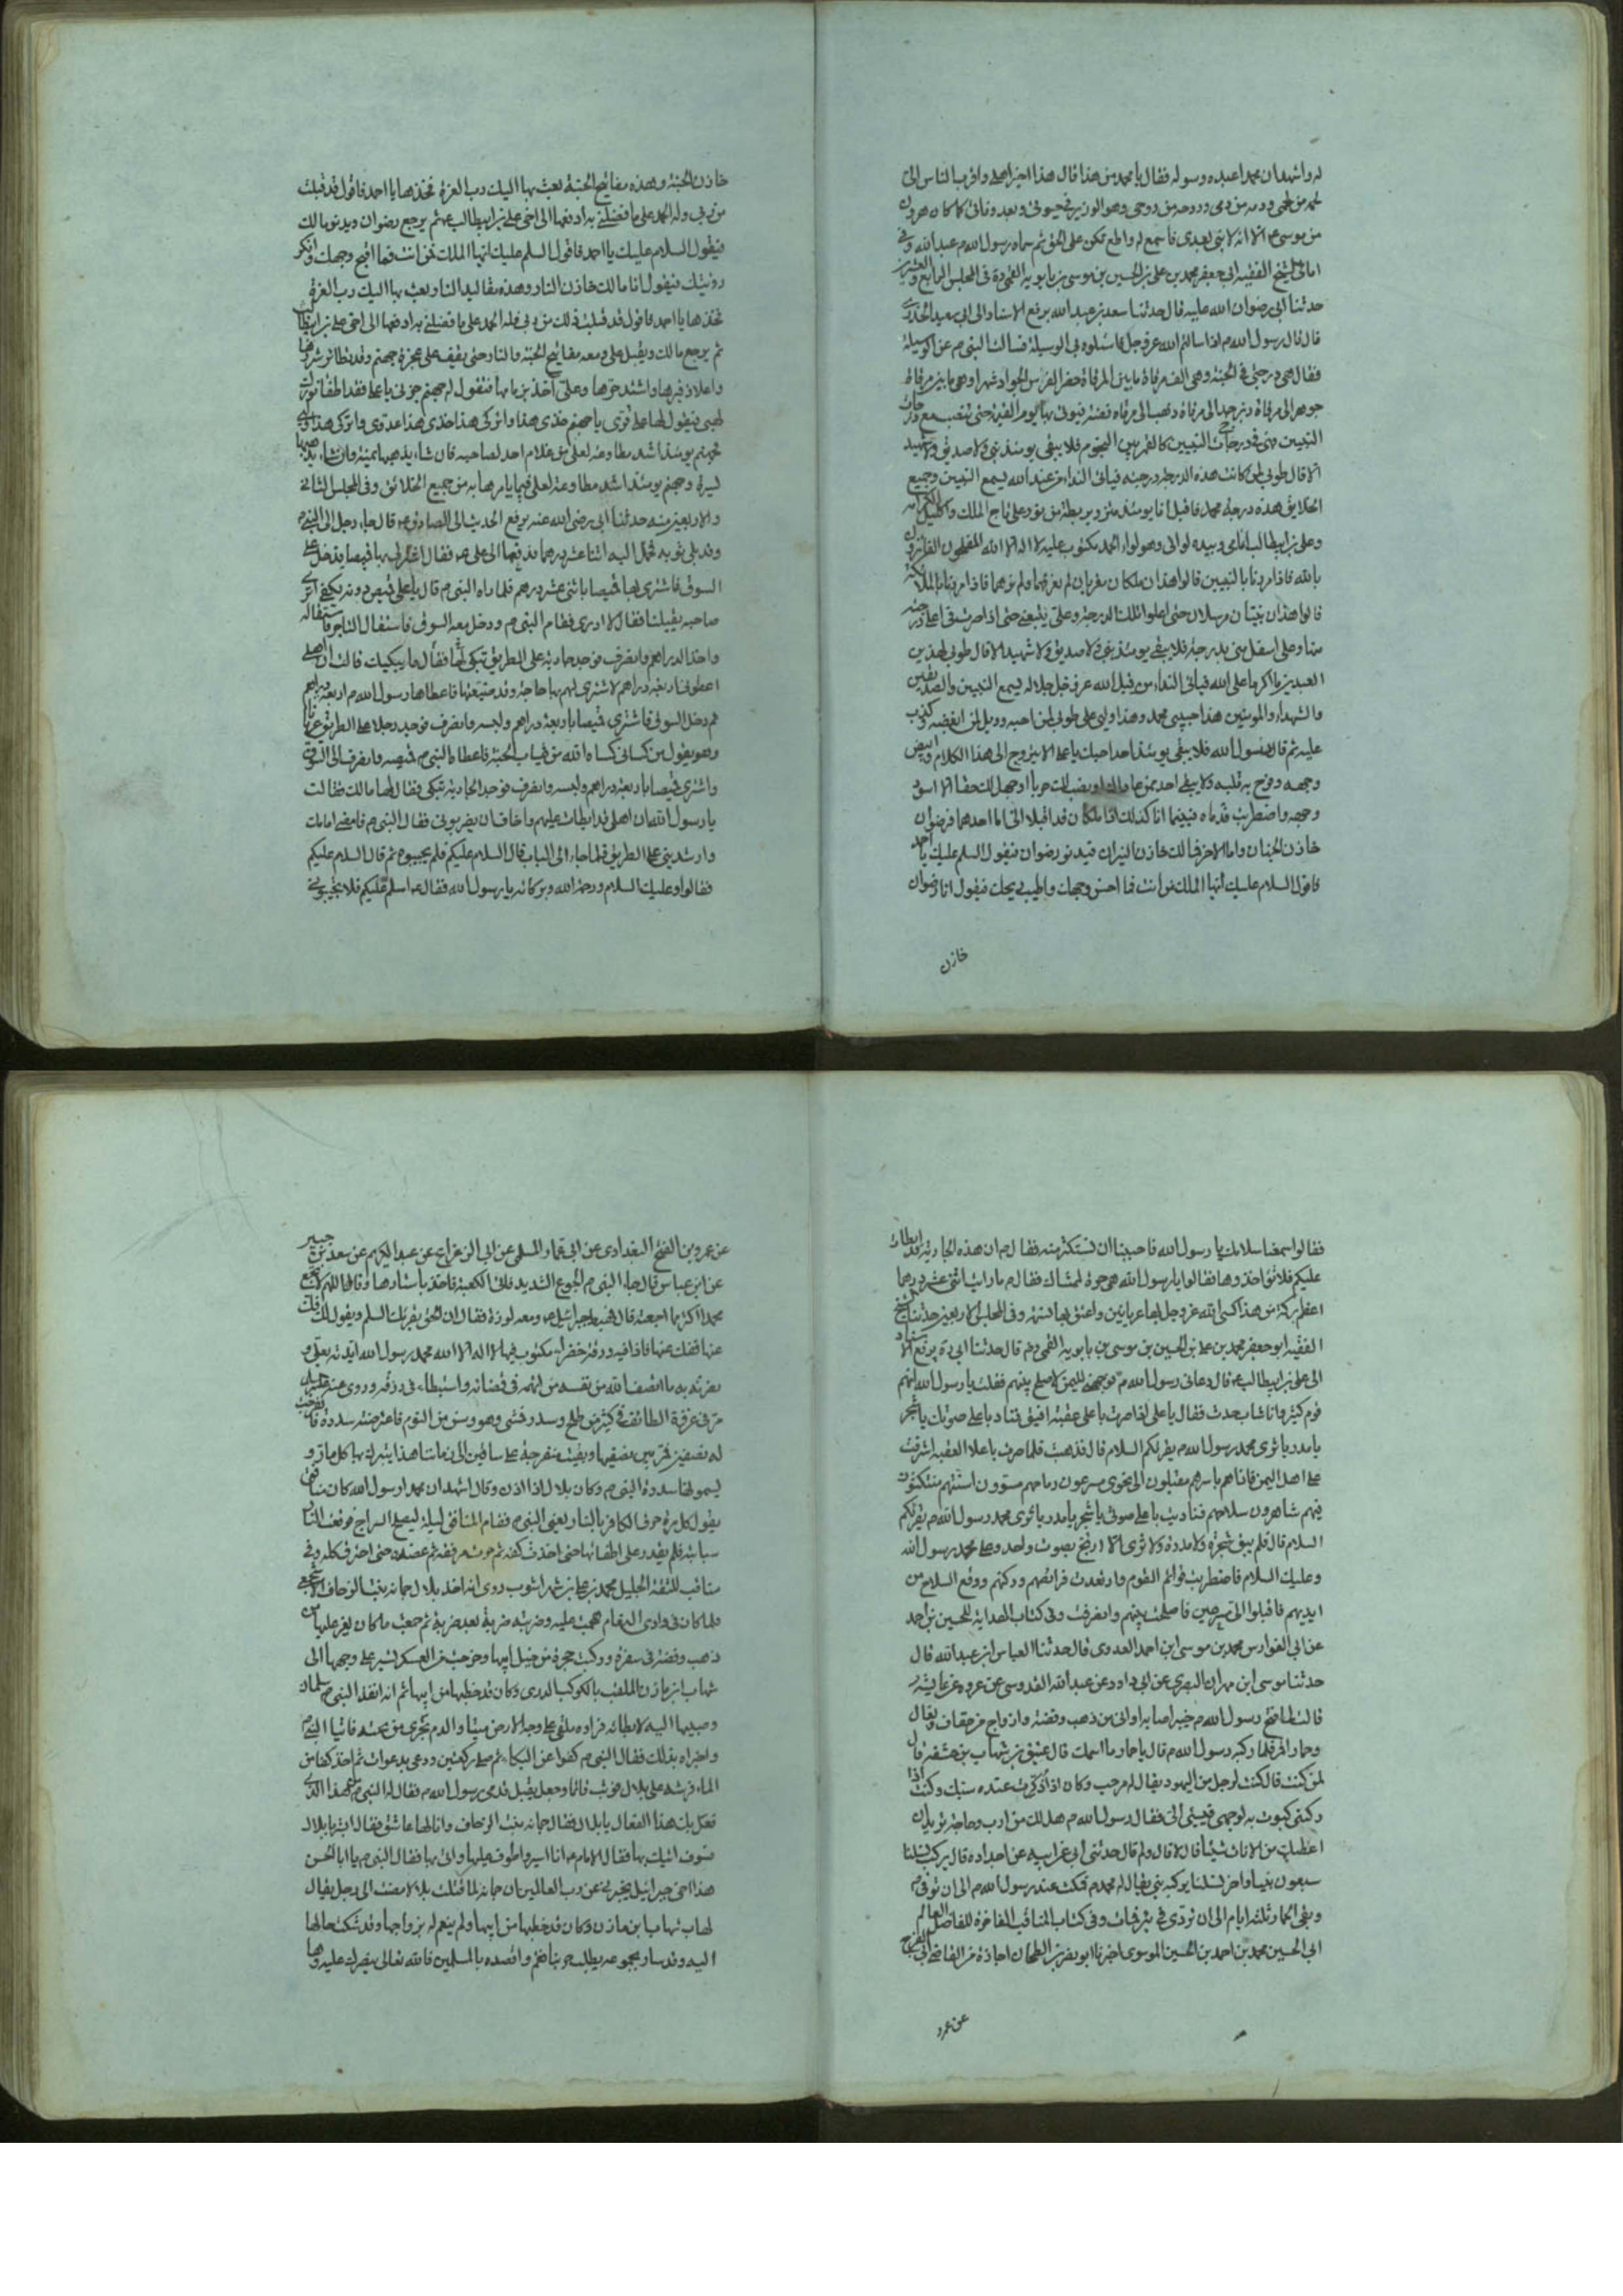 له واشهد ان محمدا عبده ورسوله فقال يا محمد من هذا قال هذا خير اهلي واقرب الناس الي
لحمه من لحمي ودمه من دمي وروحه من روحي وهو الوزير في حيوتي وبعد وفاتي كما كان هرون
من موسى ع الا انه لا نبي بعدي فاسمع له واطع تكن على الحق ثم سماه رسول الله ص عبد الله وفي
امالي الشيخ الفقيه ابي جعفر محمد بن علي بن الحسين بن موسى بن بابويه القمي ره في المجلس الرابع والعشرين
حدثنا ابي رضوان الله عليه قال حدثنا سعد بن عبد الله يرفع الاسناد الى ابي سعيد الخدري
قال قال رسول الله ص اذا سالتم الله عز وجل فاسئلوه لي الوسيلة فسالنا النبي ص عن الوسيلة
فقال هي درجتي في الجنة وهي الف مرقاة ما بين المرقاة حضر الفرس الجواد شهرا وهي ما بين مرقاة
جوهر الى مرقاة زبرجد الى مرقاة ذهب الى مرقاه فضة فيؤتى بها يوم القيمة حتى تنصب مع درجات
النبيين فهي في درجات النبيين كالقمر بين النجوم فلا يبقى يومئذ نبي ولا صديق ولا شهيد
الا قال طوبى لمن كانت هذه الدرجة درجته فياتي النداء من عند الله يسمع النبيين وجميع
الخلايق هذه درجة محمد فاقبل انا يومئذ متزر بريطة من نور على تاج الملك واكليل الكرامه
وعلي بن ابيطالب امامي وبيده لوائي وهو لواء الحمد مكتوب عليه لا اله الا الله المفلحون الفائزون
بالله فاذا مررنا بالنبيين قالوا هذان ملكان مقربان لم نعرفهما ولم نرهما فاذا مررنا بالملئكة
قالوا هذان نبيان مرسلان حتى اعلوا تلك الدرجة وعلي يتبعني حتى اذا صرت في اعلا درجة
منها وعلى اسفل مني بدرجة فلا يبقى يومئذ نبي ولا صديق ولا شهيد الا قال طوبى لهذين
العبدين ما اكرمهما على الله فياتي النداء من قبل الله عز وجل جلاله يسمع النبيين والصديقين
والشهداء والمومنين هذا حبيبي محمد وهذا وليي علي طوبى لمن احبه وويل لمن ابغضه وكذب
عليه ثم قال رسول الله فلا يبقى يومئذ احد احبك يا علي الا يتروح الى هذا الكلام وابيض
وجهه وفرح به قلبه ولا يبقى احد ممن عاداك او نصب لك حربا او جحد لك حقا الا اسود
وجهه واضطربت قدماه فبينما انا كذلك اذا ملكان قد اقبلا الي اما احدهما فرضوان
خازن الجنان واما الاخر فمالك خازن النيران فيدنو رضوان فيقول السلم عليك يا احمد
فاقول السلام عليك ايها الملك من انت فما احسن وجهك واطيب ريحك فيقول انا رضوان
خازن
خازن الجنة وهذه مفاتيح الجنة بعث بها اليك رب العزة فخذها يا احمد فاقول قد قبلت
من ربي وله الحمد على ما فضلني به ادفعها الى اخي علي بن ابيطالب ع ثم يرجع رضوان ويدنو مالك
فيقول السلام عليك يا احمد فاقول السلم عليك ايها الملك من انت فما اقبح وجهك وانكر
رؤيتك فيقول انا مالك خازن النار وهذه مقاليد النار بعث بها اليك رب العزة
فخذها يا احمد فاقول قد قبلت ذلك من ربي فله الحمد على ما فضلني به ادفعها الى اخي علي بن ابيطالب
ثم يرجع مالك ويقبل علي ومعه مفاتيح الجنة والنار حتى يقف على عجزة جهنم وقد تطائر شررها
وعلا زفيرها واشتد حرها وعلي آخذ بزمامها فتقول له جهنم جزني يا علي فقد اطفا نورك
لهبي فيقول لها علي قري يا جهنم خذي هذا واتركي هذا خذي هذا عدوي واتركي هذا وليي
فجهنم يومئذ اشد مطاوعة لعلي من غلام احد لصاحبه فان شاء يذهبها يمينة وان شاء يذهبها
يسرة وجهنم يومئذ اشد مطاوعة لعلي فيما يامرها به من جميع الخلائق وفي المجلس الثاني
والاربعين منه حدثنا ابي رضي الله عنه يرفع الحديث الى الصادق ع قال جاء رجل الى النبي ص
وقد بلي ثوبه فحمل اليه اثنا عشر درهما فدفعها الى علي ع فقال اشتر لي بها قميصا فدخل علي
السوق فاشترى لها قميصا باثنى عشر درهم فلما راه النبي ص قال يا علي قميص دونه يكفي اترى
صاحبه يقيلنا فقال لا ادري فقام النبي ص ودخل معه السوق فاستقال التاجر فاستقاله
واخذ الدراهم وانصرف فوجد جارية على الطريق تبكي فقال ما يبكيك قالت ان اهلي
اعطوني اربعة دراهم لاشتري لهم بها حاجة وقد ضيعتها فاعطاها رسول الله ص اربعة دراهم
ثم دخل السوق فاشترى قميصا باربعة دراهم ولبسه وانصرف فوجد رجلا على الطريق عريانا
وهو يقول من كساني كساه الله من ثياب الجنة فاعطاه النبي ص قميصه وانصرف الى السوق
واشترى قميصا باربعة دراهم ولبسه وانصرف فوجد الجارية تبكي فقال لها مالك فقالت
يا رسول الله ان اهلي قد ابطات عليهم واخاف ان يضربوني فقال النبي ص فامضي امامك
وارشديني على الطريق فلما جاء الى الباب قال السلام عليكم فلم يجيبوه ثم قال السلام عليكم
فقالوا وعليك السلام ورحمة الله وبركاته يا رسول الله فقال ع اسلم عليكم فلا تجيبوني
فقالوا سمعنا سلامك يا رسول الله فاحببنا ان نستكثر منه فقال ص ان هذه الجارية قد ابطات
عليكم فلا تؤاخذوها فقالوا يا رسول الله هي حرة لممشاك فقال ص ما رايت اثنى عشر درهما
اعظم بركة من هذا كسى الله عز وجل بها عريانين واعتق بها نسمة وفي المجلس الاربعين حدثنا الشيخ
الفقيه ابو جعفر محمد بن علي بن الحسين بن موسى بن بابويه القمي ره قال حدثنا ابي ره يرفع الاسناد
الى علي بن ابيطالب ع قال دعاني رسول الله ص فوجهني لليمن لاصلح بينهم فقلت يا رسول الله انهم
قوم كثير وانا شاب حدث فقال يا علي اذا صرت باعلى عقبة افيق فناد باعلى صوتك يا شجر
يا مدر يا ثرى محمد رسول الله ص يقرئكم السلام قال فذهبت فلما صرت باعلا العقبة اشرفت
على اهل اليمن فاذا هم باسرهم مقبلون الى نحوي مسرعون رماحهم مستوون اسنتهم متنكبون
قسيهم شاهرون سلاحهم فناديت باعلى صوتي يا شجر يا مدر يا ثرى محمد رسول الله ص يقرئكم
السلام قال فلم يبق شجرة ولا مدرة ولا ثرى الا ارتج بصوت واحد وعلى محمد رسول الله
وعليك السلام فاضطربت قوائم القوم وارتعدت فرائصهم وركبهم ووقع السلاح من
ايديهم فاقبلوا الي مسرعين فاصلحت بينهم وانصرفت وفي كتاب الهداية للحسين بن احمد
عن ابي الفوارس محمد بن موسى ابن احمد العدوي قال حدثنا العباس ابن عبد الله قال
حدثنا موسى ابن مهران البصري عن ابي داود عن عبد الله القدوسي عن عروة عن عايشة
قالت لما فتح رسول الله ص خيبر اصابه اواني من ذهب وفضة وازواج خفاف وبغال
وحمار اقمر فلما ركبه رسول الله ص قال يا حمار ما اسمك قال عتيق بن شهاب بن حنيفة قال
لمن كنت قال كنت لرجل من اليهود يقال له مرحب وكان اذا ذكرت عنده سبك وكنت اذا
ركبني كبوت به لوجهي فيسيئ الي فقال رسول الله ص هل لك من ارب وحاجة تريد ان
اعطيك من الاناث شيئا قال لا قال ولم قال حدثني ابي عن ابيه عن اجداده قال يركب نسلنا
سبعون نبيا واخر نسلنا يركبه نبي يقال له محمد ص فمكث عند رسول الله ص الى ان توفي ص
وبقي الحمار ثلثة ايام الى ان تردى في بئر فمات وفي كتاب المناقب الفاخرة للفاضل العالم
ابي الحسين محمد بن احمد بن الحسين الموسوي اخبرنا ابو نصر بن الطحان اجازة عن القاضي ابي الفرج
عن عمرو
عن عمرو بن الفتح البغدادي عن ابي عمار المسلمي عن ابي الزعزاع عن عبد الكريم عن سعد بن جبير
عن ابن عباس قال جاء النبي ص الجوع الشديد فاتى الكعبة فاخذ باستارها وقال اللهم لا تجع
محمدا اكثر مما اجعته قال فهبط جبرائيل ع ومعه لوزة فقال ان الحق يقرئك السلم ويقول لك فك
عنها ففك عنها فاذا فيه ورقة خضراء مكتوب فيها لا اله الا الله محمد رسول الله ايدته بعلي و
نصرته به ما انصف الله من نفسه من اتهمه في قضائه واستبطاه في رزقه وروي عنه عليه السلم
مر في غزوة الطائف في كثير من طلح وسدر فمشى وهو وسن من النوم فاعترضته سدرة فانفرجت
له نصفين فمر بين نصفيها وبقيت منفرجة على ساقين الى زماننا هذا يتبرك بها كل مار و
يسمونها سدرة النبي ص وكان بلال اذا اذن وقال اشهد ان محمدا رسول الله كان منافق
يقول كل مرة حرق الكافر بالنار يعني النبي ص فقام المنافق ليلة ليصلح السراج فوقعت النار
سبابته فلم يقدر على اطفائها حتى اخذت كفه ثم مرفقه ثم عضده حتى احترق كله وفي
مناقب للثقة الجليل محمد بن علي بن شهراشوب روي انه اخذ بلال جمانة بنت الزحاف الاشجعي
فلما كان في وادي النعام هجمت عليه وضربته ضربة بعد ضربة ثم جمعت ما كان يعز عليها من
ذهب وفضة في سفرة وركبت حجرة من خيل ابيها وخرجت من العسكر تسير على وجهها الى
شهاب ابن مازن الملقب بالكوكب الدري وكان قد خطبها من ابيها ثم انه انفذ النبي ص سلمان
وصهيبا اليه لابطائه فراوه ملقى على وجه الارض ميتا والدم يجري من تحته فاتيا النبي ص
واخبراه بذلك فقال النبي ص كفوا عن البكاء ثم صلى ركعتين ودعى بدعوات ثم اخذ كفا من
الماء فرشه على بلال فوثب قائما وجعل يقبل قدمي رسول الله ص فقال له النبي ص من هذا الذي
فعل بك هذا الفعال يا بلال فقال جمانة بنت الزحاف وانا لها عاشق فقال ابشر يا بلال
فسوف اتيك بها فقال الامام ع انا اسير واطوف عليها واتي بها فقال النبي ص يا ابا الحسن
هذا اخي جبرائيل يخبرني عن رب العالمين ان جمانة لما قتلت بلالا مضت الى رجل يقال
لها شهاب ابن مازن وكان قد خطبها من ابيها ولم ينعم له بزواجها وقد شكت حالها
اليه وقد سار بجموعه يطلب حربنا فقم واقصده بالمسلمين فالله تعالى ينصرك عليه وها